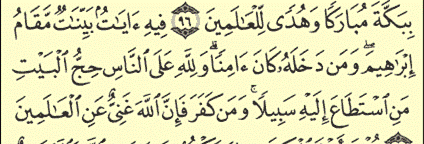 بِبَكَّةَ مُبَارَكًا وَهُدًى لِّلْعَـٰلَمِينَ ٩٦ فِيهِ ءَايَـٰتُۢ بَيِّنَـٰتٌ مَّقَامُ
إِبْرَٰهِيمَ ۖ وَمَن دَخَلَهُۥ كَانَ ءَامِنًا ۗ وَلِلَّهِ عَلَى ٱلنَّاسِ حِجُّ ٱلْبَيْتِ
مَنِ ٱسْتَطَاعَ إِلَيْهِ سَبِيلًا ۚ وَمَن كَفَرَ فَإِنَّ ٱللَّهَ غَنِىٌّ عَنِ ٱلْعَـٰلَمِينَ